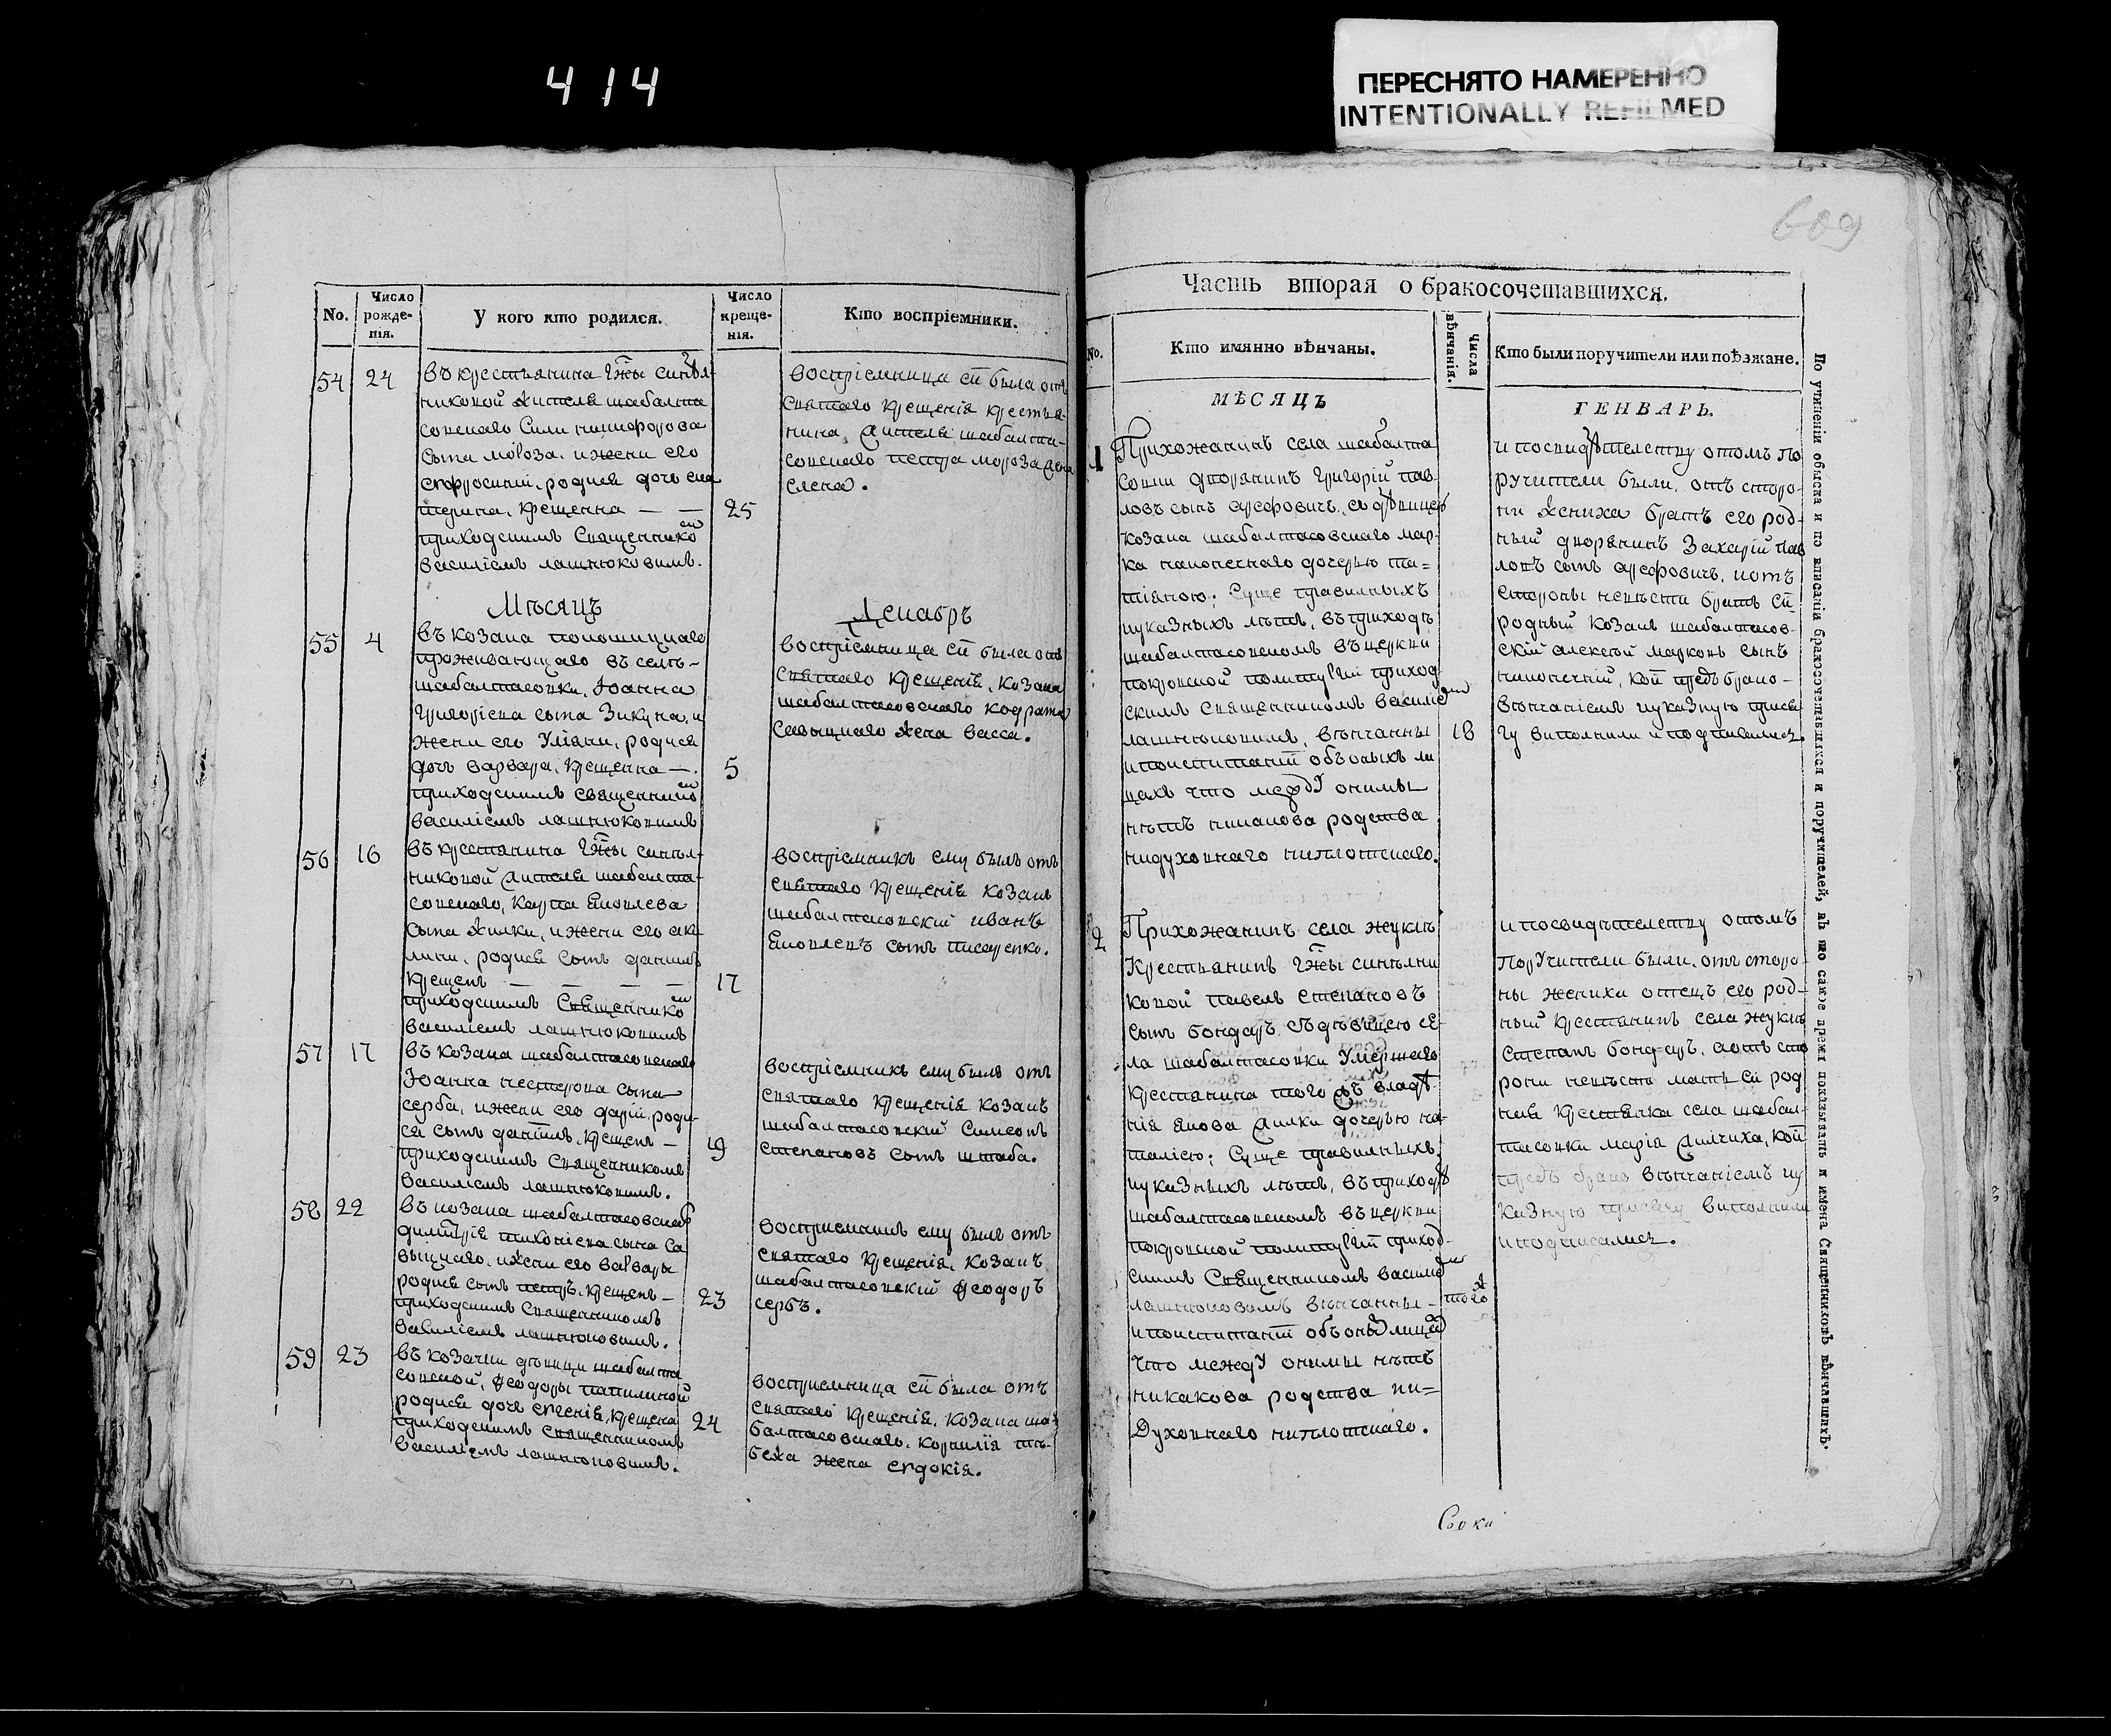 414
ПЕРЕСНЯТО НАМЕРЕННО
INTENTIONALLY REFILMED
609
No.
Число рожде-нія.
У кого кто родился.
Число креще-нія.
Кто воспріемники.
54 24
въ крестьянина Гжи синѣл-
никовой жителя шабалта
совскаго Сили никифорова
сына мороза. и жени его
ефросиніи, родися дочь ека
терина, крещенна — — 25
приходскимъ Священнико
василіемъ лашнюковимъ.
воспріемница ей была отъ
святаго крещенія крестья-
нина, жителя шабалта-
совскаго петра мороза жена
елена.
Мѣсяцъ
Декабръ
55 4
въ козака
проживающаго въ селѣ-
шабалтасовки, Іоанна
Григоріева сына Зикуна, и
жени его Уліяни, родися
дочь варвара, крещенна —. 5
приходскимъ священнико
василіемъ лашнюковимъ
воспріемница ей была отъ
святаго крещенія, козака
шабалтасовскаго кодрата
савыцкаго жена васса.
56 16
въ крестянина Гжи синѣл-
никовой жителя шабалта-
совскаго, Карпа Яковлева
сына Жилки, и жени его ак
лини, родися сынъ данiилъ
крещенъ — — — — 17
приходскимъ Священнико
василіемъ лашнюковимъ
воспріемникъ ему былъ отъ
святаго крещенія козакъ
шабалтасовскій иванъ
Яковлевъ сынъ писаренко.
57 17
въ козака шабалтасовскаго
Іоанна нестерова сына
серба, и жени его даріи, роди-
ся сынъ даніилъ, крещенъ — 19
приходскимъ Священникомъ
василіемъ лашнюковимъ.
воспріемникъ ему былъ отъ
святаго крещенія козакъ
шабалтасовскій Симеонъ
степановъ сынъ штаба.
58 22
въ козака шабалтасовскаго
димитрія прокопіева сына са
выцкаго, и жени его варвары
родися сынъ петръ, крещенъ — 23
приходскимъ Священникомъ
василіемъ лашнюковимъ.
воспріемникъ ему былъ отъ
святаго крещенія, козакъ
шабалтасовскій феодоръ
сербъ.
59 23
въ козачки дѣвици шабалта
совской, феодоры
родися дочь евгенія, крещена 24
приходскимъ священникомъ
василіемъ лашнюковимъ.
воспріемница ей была отъ
святаго крещенія, козака ша
балтасовскаго, корнилія
жена евдокія.
Часть вторая о бракосочетавшихся.
No.
Кто имянно вѣнчаны.
Числа вѣнчанія.
Кто были поручители или поѣзжане.
МѢСЯЦЪ
ГЕНВАРЬ.
1
Прихожанинъ села шабалта
совки дворянинъ Григорій пав-
ловъ сынъ арефовичъ, съ дѣвицею
козака шабалтасовскаго мар-
ка дочерью та=
тіяною; Суще правилныхъ
и указныхъ лѣтъ, въ приходѣ
шабалтасовскомъ въ церкви
покровской по литургіи приход
скимъ священникомъ василіемъ
лашнюковимъ, вѣнчанны 18
и по испитаніи объ оныхъ ли
цахъ что между онимы
нѣтъ никакова родства
ни духовнаго ни плотскаго.
и по свидѣтелству о томъ по
ручители были, отъ сторо-
ни жениха братъ его род-
ный дворянинъ Захарій пав
ловъ сынъ арефовичъ, и отъ
стороны невѣсти братъ ей
родный козакъ шабалтасов-
скій алексѣй марковъ сынъ
кои предъ брако-
вѣнчаніемъ указную прися
гу виполнили и подписались.
2
Прихожанинъ села жуклѣ
крестьянинъ Гжи синѣлни
ковой павелъ степановъ
сынъ бондаръ съ дѣвицею се-
ла шабалтасовки Умершаго
крестянина того жъ владѣ-
нія Якова Жилки дочерью на-
таліею; Суще правилныхъ
и указныхъ лѣтъ, въ приходѣ
шабалтасовскомъ въ церкви
покровской по литургіи приход-
скимъ Священникомъ василіемъ
лашнюковимъ вѣнчанны — того ж
и по испитаніи объ оныхъ лицахъ
что между онимы нѣтъ
никакова родства ни=
духовнаго ни плотскаго.
и по свидѣтелству о томъ
поручители были, отъ сторо-
ны жениха отецъ его род-
ный крестянинъ села жуклѣ
степанъ бондаръ, а отъ сто
рони невѣсти мать ей род
ная крестянка села шабал-
тасовки марія Жилчиха, кои
предъ брако вѣнчаніемъ у
казную присягу виполнили
и подписались.
По учиненіи обыска и по вписаніи бракосочетавшихся и поручителей, въ то самое время показывать и имена Священниковъ вѣнчавшихъ.